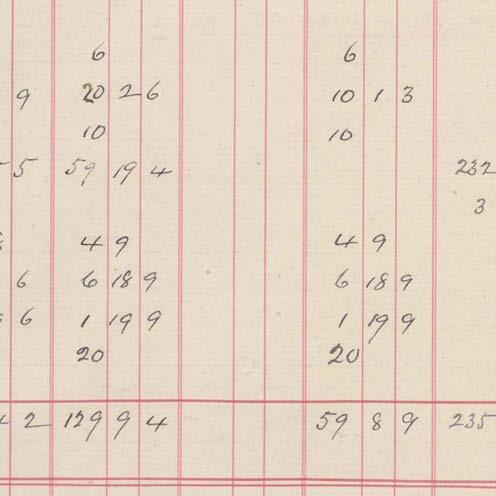 6 6
9 20 2 6 10 1 3
10 10
5 59 19 4 232
3
4 9 4 9
6 6 18 9 6 18 9
6 1 19 9 1 19 9
20 20
2 129 9 4 59 8 9 235